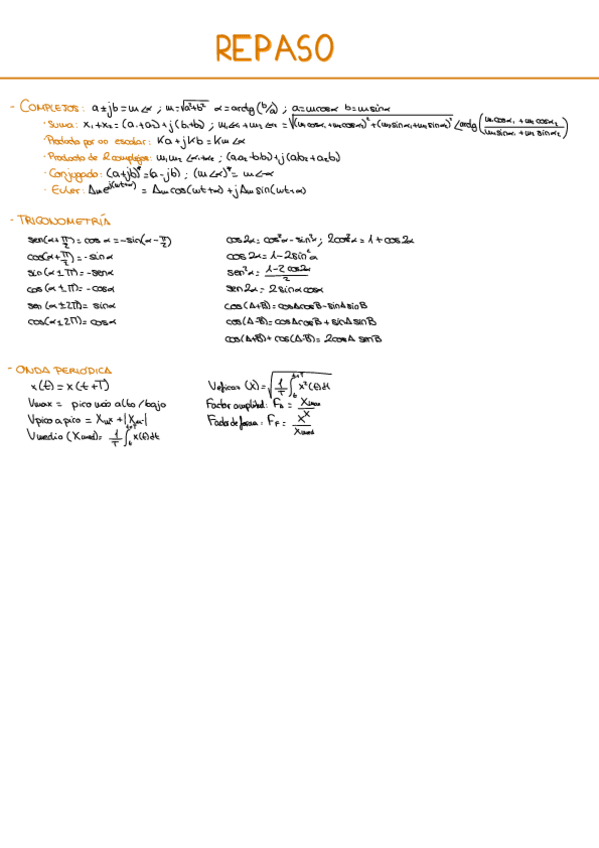 REPASO
- COMPLEJOS: a ± jb = m∠α ; m = √(a²+b²) α = arctg(b/a) ; a = m cosα b = m sinα
· Suma: x₁+x₂ = (a₁+a₂)+j(b₁+b₂) ; m₁∠α₁ + m₂∠α₂ = √((m₁cosα₁+m₂cosα₂)²+(m₁sinα₁+m₂sinα₂)²) ∠arctg((m₁cosα₁+m₂cosα₂)/(m₁sinα₁+m₂sinα₂))
· Producto por un escalar: Ka + jKb = Km∠α
· Producto de 2 complejos: m₁m₂ ; (a₁a₂-b₁b₂)+j(a₁b₂+a₂b₁)
· Conjugado: (a+jb)* = (a-jb) ; (m∠α)* = m∠-α
· Euler: Aₘe^j(wt+α) = Aₘcos(wt+α) + jAₘsin(wt+α)
- TRIGONOMETRÍA
sen(α+π/2) = cosα = -sin(α-π/2)
cos(α+π/2) = -sinα
sin(α±π) = -senα
cos(α±π) = -cosα
sen(α±2π) = sinα
cos(α±2π) = cosα
cos2α = cos²α - sin²α ; 2cos²α = 1 + cos2α
cos2α = 1 - 2sin²α
sen²α = (1-2cos2α)/2
sen2α = 2sinαcosα
cos(A+B) = cosAcosB - sinAsinB
cos(A-B) = cosAcosB + sinAsinB
cos(A+B) + cos(A-B) = 2cosA senB
- ONDA PERIÓDICA
x(t) = x(t+T)
Vmax = pico más alto/bajo
Vpico a pico = Xₘ⁺ + |Xₘ⁻|
Vmedio (Xmed) = 1/T ∫ₜ^(t+T) x(t)dt
Veficaz (X) = √(1/T ∫ₜ^(t+T) x²(t)dt)
Factor amplitud: F_A = Xmax/X
Factor de forma: F_F = X/Xmed